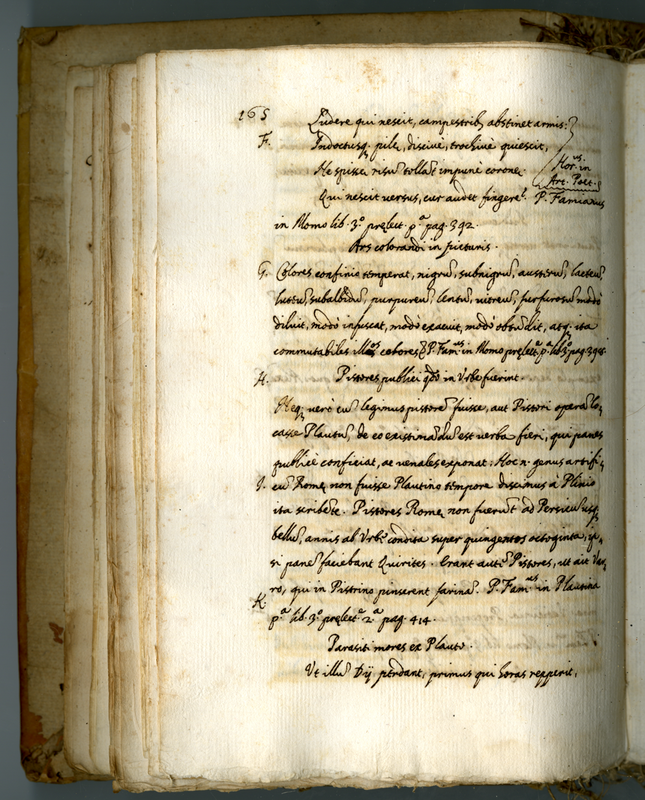 165
Ludere qui nescit, campestrib; abstinet armis:
F. Indoctusq; pilę, discivè, trochivè quiescit,
Ne spissę risũ tollãt impunè coronę.
Hor.us in
Art. Poet.
Qui nescit versus, cur audet fingere?
P. Famianus
in Momo lib. 3.º pręlect. p.ª pag. 392.
Ars colorandi in picturis.
G. Colores confinio temperat, nigrũ, subnigrũ, austerũ, lacteũ
luteũ, subalbidũ, purpureũ, lentũ, vitreũ, furfurosũ modò
diluit, modò infuscat, modò exacuit, modò obtũdit, atq; ita
commutabiles illos colores P. Fam.us in Momo pręlect. p.ª lib. 3.º pag. 394.
H. Pistores publici qdo in Urbe fuerint
Neq; verò cũ legimus pistorẽ fuisse, aut Pistori operã lo-
casse Plautũ, de eo existimãdũ est verba fieri, qui panes
publicè conficiat, ac venales exponat. Hoc n. genus artifi-
I. cũ Romę non fuisse Plautino tempore discimus à Plinio
ita scribẽte. Pistores Romę non fuerũt ad Persicũ usq;
bellũ, annis ab Urbe condita super quingentos octoginta, ip-
si panẽ faciebant Quirites. Erant autẽ Pistores, ut ait Var-
ro, qui in Pistrino pinserent farinã. P. Fam.us in Plautina
K.
p.ª lib. 3.º pręlect. 2.ª pag. 414.
Parasiti mores ex Plauto.
Ut illũ Dij perdant, primus qui horas repperit,